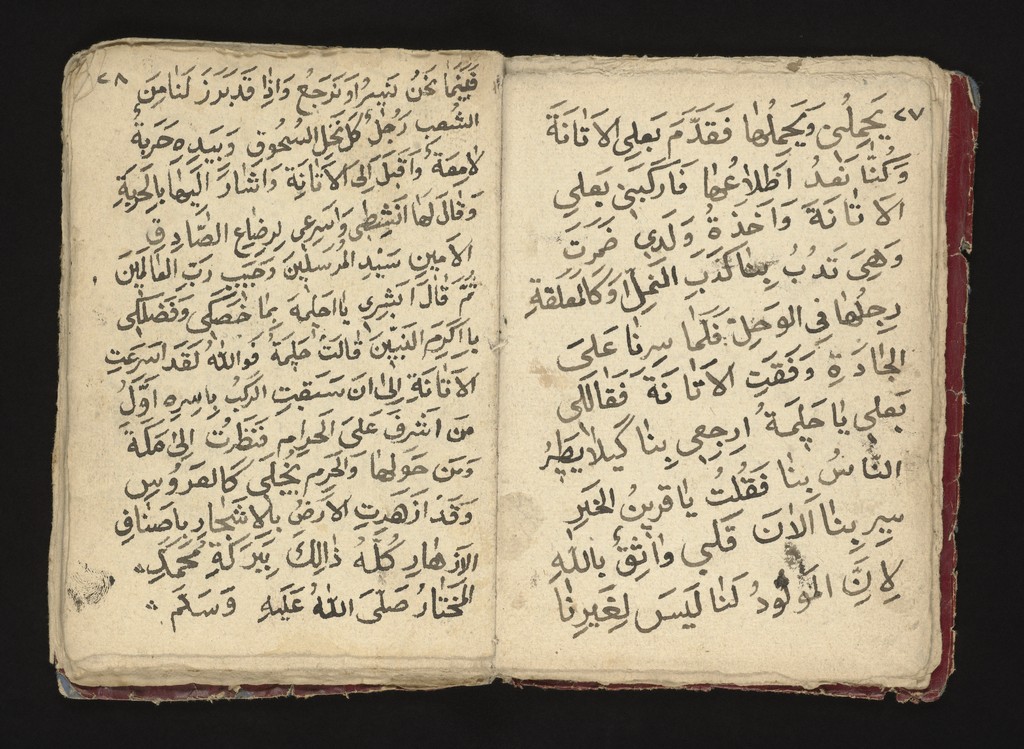 ٢٧
يَحمِلُنى وَيَحمِلُها فَقَدَّمَ بَعلى الاَتانَةَ
وَكُنَّا نَعُدُ اَظلاعُها فَاركَبَنى بَعلى
الاتانَةَ وَاَخَذةُ وَلَدى ضَمرَت
وَهِىَ تَدُبُ بِنا كَدَبَ النَملِ اَو كَالمعَلَقَةِ
رِجلُها فى الوَحِل فَلَما سِرنا عَلىَ
الجادَةِ وَقَفَتِ الاَتانَةَ فَقالَلى
بَعلى يا حَلِمَةُ اِرجِعى بِنا كَيلا يَطَيرُ
النَّاسُ بِنا فَقُلتُ يا قَرينُ الخَيرِ
سِربِنا اَلآنَ قَلبى واثِقٌ بِاللهِ
لِانَّ المَولُودُ لَنا لَيسَ لِغَيرِنا
٢٨
فَبَينَما نَحنُ نَسيرُ اَو نَرجَعُ وَاِذا قَد بَرَزَ لَنا مِنَ
الشُعبِ رَجُلٌ كَلنَخلِ السُحوُقِ وَبَيَدِهِ حَربَةٌ
لامِعَةٌ وَاَقبَلَ اِلى الاَتانَةِ وَاَشارَ اِلَيها بِالحَربَةِ
وَقالَ لَها اَنشِطى وَاَسرِعى لِرِضاعِ الصَّادِقِ
الاَمين سَيِدِ المُرسَلينَ وَحَبيبِ رَبِّ العالَمينَ
ثُمَّ قالَ اَبشِرى يا حَلِمَةَ بِما خَصَكى وَفَضَلَكى
بِاَكرَمِ النَبّيَنَ قالَت حَلِمَةُ فَوَاللهُ لَقَد اَسرَعَتِ
الاَتانَةِ اِلى ان سَبَقَتِ الرَكبُ بِاَسرِهِ اَوَّلَ
مَن اَشرَفَ عَلىَ الحَرامِ فَنَظَرتُ اِلى مَكَةَ
وَمَن حَولَها وَالحَرَمِ يُجلَى كَالعَروُسِ
وَقَد اَزهَرتِ الاَرضُ بِالاَشجارِ بِاَصنافِ
الاَزهارِ كُلُهُ ذالِكَ بِبَركَةِ مُحَمَدٍ
المُختارُ صَلىَ اللهُ عَلَيهِ وَسَلَم